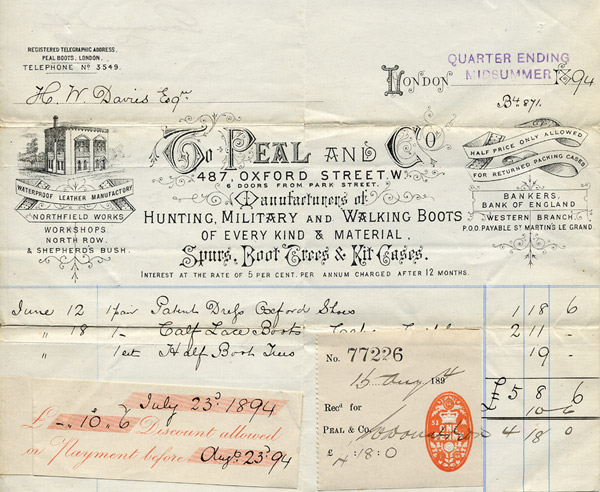 REGISTERED TELEGRAPHIC ADDRESS,
PEAL BOOTS, LONDON.
TELEPHONE Nº 3549.
London
QUARTER ENDING
MIDSUMMER
1894
H. W. Davies Esqre
To PEAL AND Co.
487, OXFORD STREET, W.
6 DOORS FROM PARK STREET.
Manufacturers of
HUNTING, MILITARY AND WALKING BOOTS
OF EVERY KIND & MATERIAL,
Spurs, Boot Trees & Kit Cases.
INTEREST AT THE RATE OF 5 PER CENT. PER ANNUM CHARGED AFTER 12 MONTHS.
WATERPROOF LEATHER MANUFACTORY
NORTHFIELD WORKS
WORKSHOPS.
NORTH ROW.
& SHEPHERD'S BUSH.
HALF PRICE ONLY ALLOWED
FOR RETURNED PACKING CASES
BANKERS,
BANK OF ENGLAND
WESTERN BRANCH.
P.O.O. PAYABLE ST MARTIN'S LE GRAND.
June 12 1 pair Patent Dress Oxford Shoes 1 18 6
" 18 1 - Calf Lace Boots 2 11 -
" 1 set Half Boot Trees 19 -
£ 5 8 6
10 6
4 18 0
July 23d 1894
£ -.10.6 Discount allowed
on Payment before Augt 23d 94
No. 77226
15 Aug 1894
Recd for
PEAL & Co.
£ 4:18:0